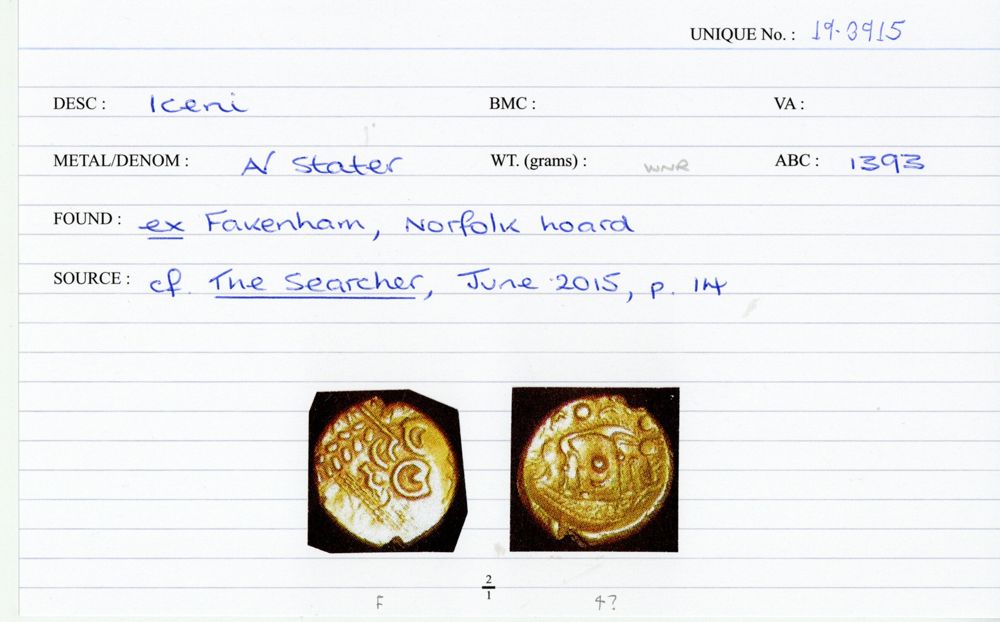 UNIQUE No. : 19-3915
DESC : Iceni BMC : VA :
METAL/DENOM : A/ Stater WT. (grams) : WNR ABC : 1393
FOUND : ex Fakenham, Norfolk hoard
SOURCE : cf. The Searcher, June 2015, p. 14
2
1
F 4?